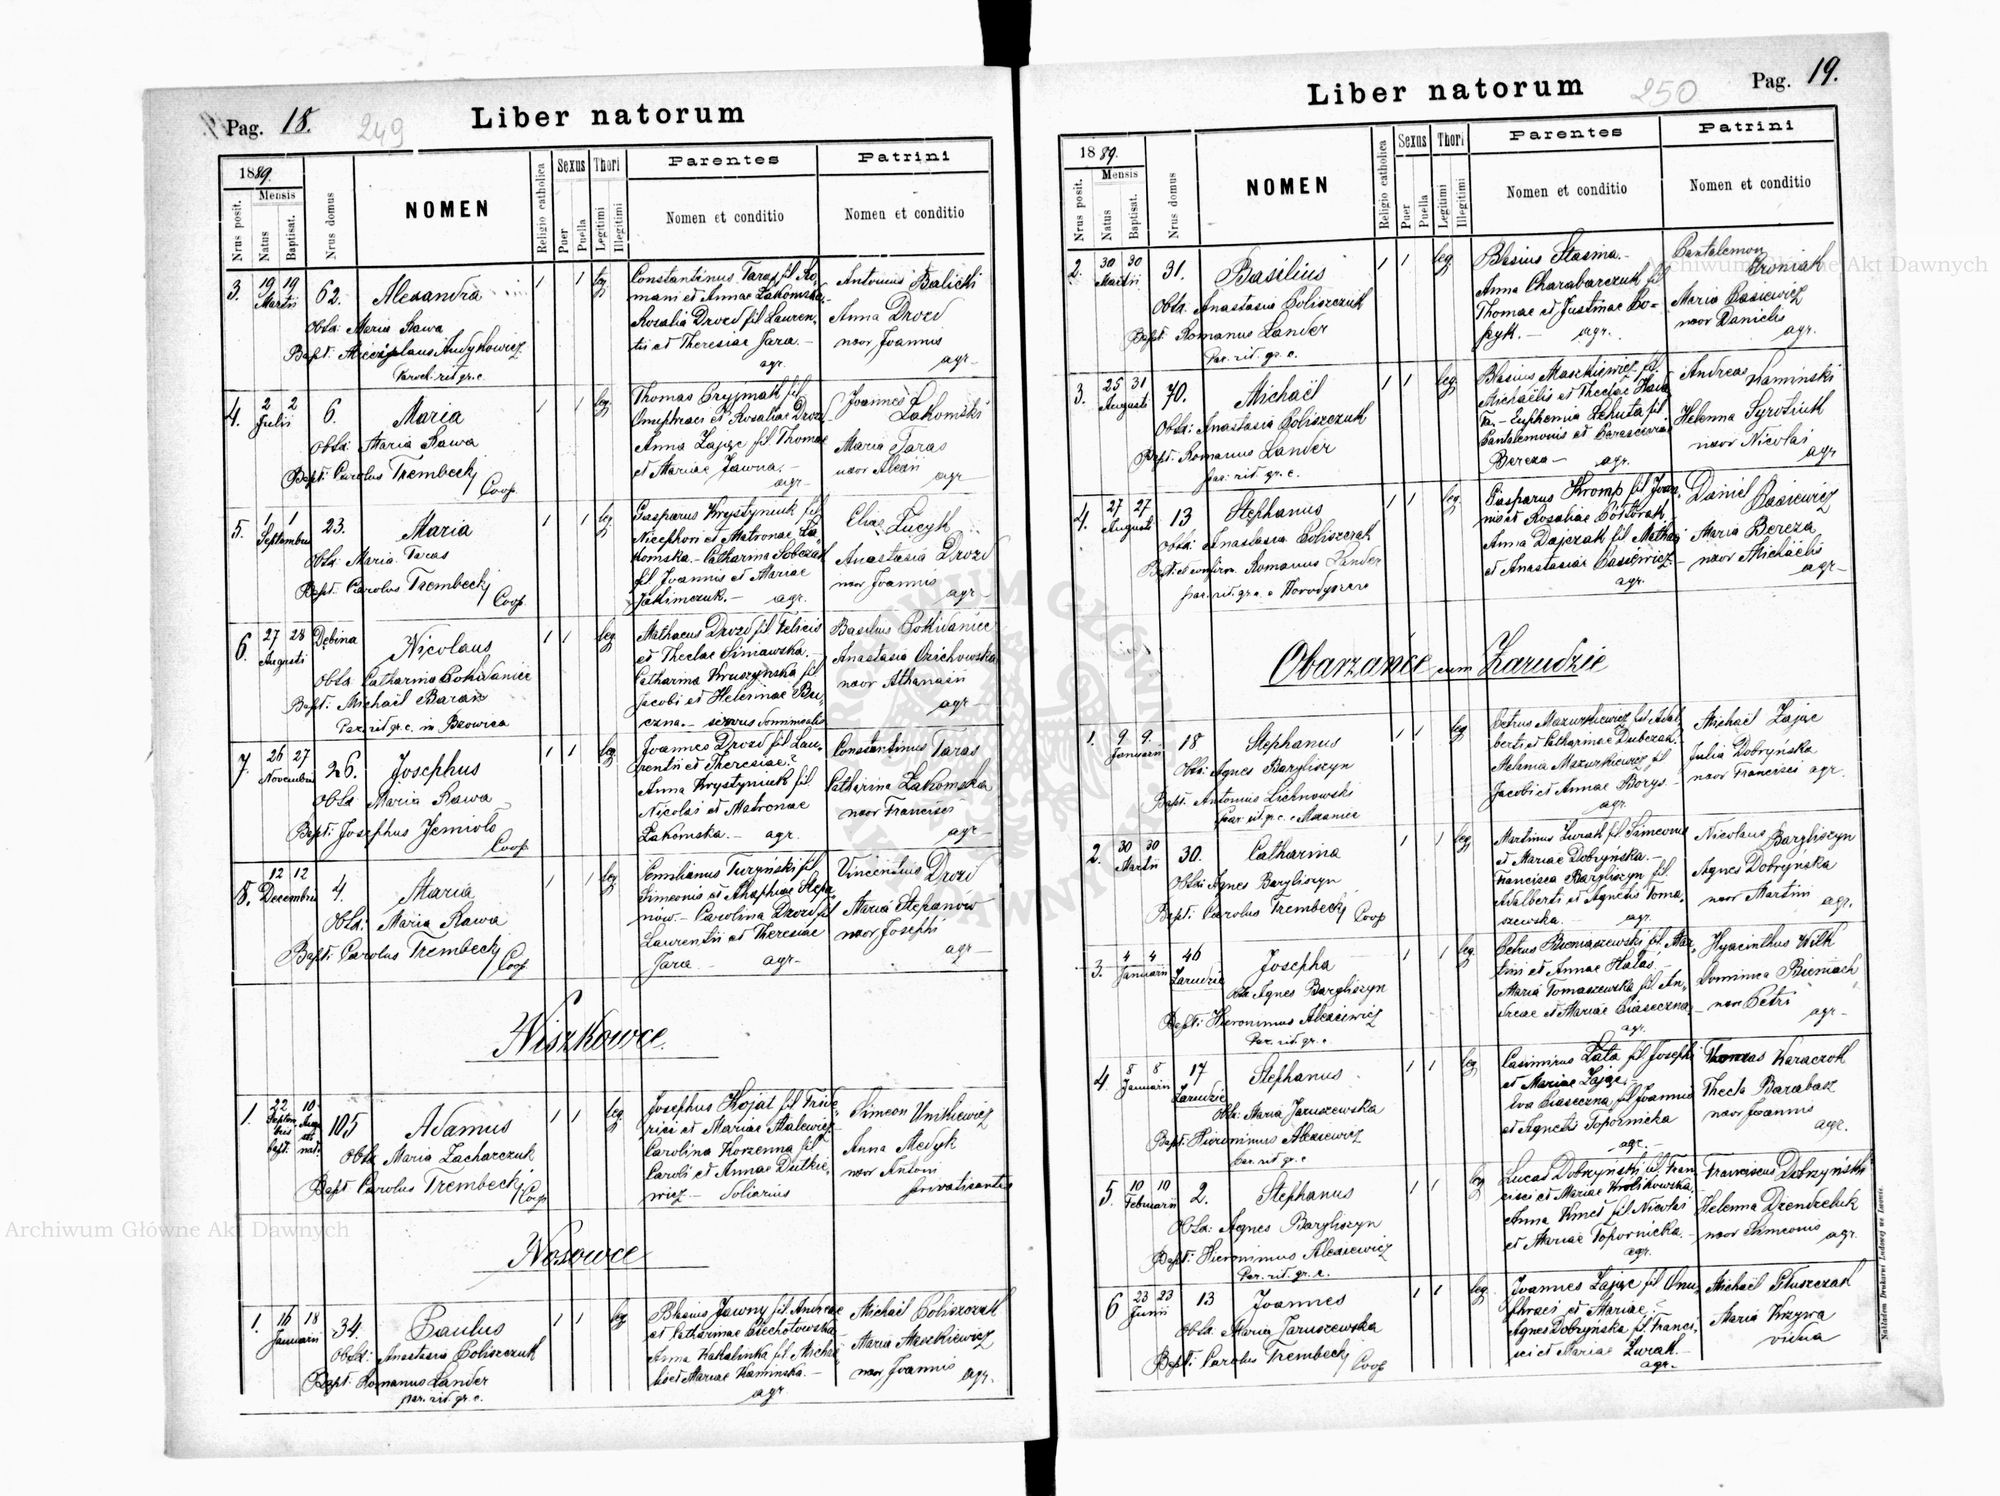 Pag. 18.
249
Liber natorum
1889.
Nrus posit.
Mensis
Natus
Baptisat.
Nrus domus
NOMEN
Religio catholica
Sexus
Puer
Puella
Thori
Legitimi
Illegitimi
Parentes
Nomen et conditio
Patrini
Nomen et conditio
3. 19 19 Martii 62. Alexandra 1 1 leg
Obst: Maria Rawa
Bapt: Miecislaus Andykowicz
Paroch. rit. gr. c.
Constantinus Taras fil Ro-
mani et Annae Zakomska.
Rosalia Drozd fil Lauren-
tii et Theresiae Jara. —
agr.
Antonius Balicki
Anna Drozd
uxor Joannis
agr —
4. 2 2 Julii 6. Maria 1 1 leg
Obst: Maria Rawa
Bapt: Carolus Trembecki
Coop.
Thomas Pryjmak fil
Onuphraei et Rosaliae Drozd
Anna Zając fil Thomae
et Mariae Jawna. —
agr —
Joannes Zakomski
Maria Taras
uxor Alexii
agr —
5. 1 1 Septembris 23. Maria 1 1 leg
Obst: Maria Taras
Bapt: Carolus Trembecki
Coop.
Gasparus Krystyniuk fil
Nicephori et Matronae Za-
komska. — Catharina Sobczak
fil Joannis et Mariae
Jakimczuk. — agr.
Elias Fucyk
Anastasia Drozd
uxor Joannis
agr —
6. 27 28 Augusti Dębina Nicolaus 1 1 leg
Obst: Catharina Pokiwaniec
Bapt: Michaël Baran
Par. rit. gr. c. in Bzowica
Mathaeus Drozd fil Felicis
et Theclae Simawska. —
Catharina Kruszynska fil
Jacobi et Helennae Bu-
czna. — servus dominicalis
Basilius Pokiwaniec
Anastasia Orichowska
uxor Athanasii
agr —
7. 26 27 Novembris 26. Josephus 1 1 leg
Obst: Maria Rawa
Bapt: Josephus Jemiolo
Coop.
Joannes Drozd fil Lau-
rentii et Theresiae. —
Anna Krystyniuk fil
Nicolai et Matronae
Zakomska. — agr.
Constantinus Taras
Catharina Zakomska
uxor Francisci
agr —
8. 12 12 Decembris 4. Maria 1 1 leg
Obst: Maria Rawa
Bapt: Carolus Trembecki
Coop.
Emilianus Turzyński fil
Simeonis et Ahaphiae Stepa-
now — Carolina Drozd fil
Laurentii et Theresiae
Jara — agr —
Vincentius Drozd
Maria Stepanów
uxor Josephi
agr —
Niszkowce.
1. 22 Septembris bapt. 10 Augusti nat. 105 Adamus 1 1 leg
Obst: Maria Zacharczuk
Bapt Carolus Trembecki
Coop.
Josephus Kojat fil Fride-
rici et Mariae Malewicz
Carolina Korzenna fil
Caroli et Annae Dutkie-
wicz — doliarius
Simeon Unikiewicz
Anna Medyk
uxor Antoni
privatisantes
Nosowce
1. 16 18 Januarii 34. Paulus 1 1 leg
Obst: Anastasia Poliszczuk
Bapt: Romanus Lander
par. rit. gr. c.
Blasius Jawny fil Andreae
et Catharinae Piechotowska
Anna Kakalinka fil Michaë-
lis et Mariae Kaminska. —
agr
Michaël Poliszczuk
Maria Maszkiewicz
uxor Joannis
agr.
Pag. 19.
250
Liber natorum
1889.
Nrus posit.
Mensis
Natus
Baptisat.
Nrus domus
NOMEN
Religio catholica
Sexus
Puer
Puella
Thori
Legitimi
Illegitimi
Parentes
Nomen et conditio
Patrini
Nomen et conditio
2. 30 30 Martii 31. Basilius 1 1 leg
Obst: Anastasia Poliszczuk
Bapt: Romanus Lander
Par. rit. gr. c.
Basius Stasina. —
Anna Charabarczuk fil
Thomae et Justinae Bo-
pyk. — agr.
Pantalemon Kroniak
Maria Basiewicz
uxor Danielis
agr.
3. 25 31 Augusti 70. Michaël 1 1 leg
Obst: Anastasia Poliszczuk
Bapt: Romanus Lander
par. rit. gr. c.
Blasius Maszkiewicz fil.
Michaëlis et Theclae
Euphemia Lehuta fil
Pantalemonis et Parascevae
Bereza — agr.
Andreas Kaminski
Helenna Syrotiuk
uxor Nicolai
agr
4. 27 27 Augusti 13 Stephanus 1 1 leg.
Obst: Anastasia Poliszczuk
Bapt: et confirm. Romanus Lander
par. rit. gr. c. e Horodyszcze
Gasparus Kromp fil Joan-
nis et Rosaliae Półtorak,
Anna Dajczak fil Mathaei
et Anastasiae Basiewicz
agr.
Daniel Basiewicz
Maria Bereza
uxor Michaëlis
agr —
Obarzańce cum Zarudzie
1. 9 9. Januarii 18 Stephanus 1 1 leg
Obst: Agnes Baryliszyn
Bapt: Antonius Lichnowski
Par. rit. gr. c.
Petrus Mazurkiewicz fil Adal-
berti et Catharinae Dubczak.
Helenna Mazurkiewicz fil
Jacobi et Annae Borys. —
agr.
Michaël Zając
Julia Dobrynska
uxor Francisci agr.
2. 30 30 Martii 30. Catharina 1 1 leg
Obst: Agnes Baryliszyn
Bapt: Carolus Trembecki Coop
Martinus Zurak fil. Simeonis
et Mariae Dobryńska. —
Francisca Baryliszyn fil.
Adalberti et Agnetis Toma-
szewska. — agr.
Nicolaus Baryliszyn
Agnes Dobryńska
uxor Martini
agr.
3. 4 4 Januarii 46 Zarudzie Josepha 1 1 leg.
Obst: Agnes Baryliszyn
Bapt: Hieronimus Alexiewicz
Par. rit. gr. c.
Petrus Bieniaszewski fil. Mar-
tini et Annae Hałas —
Maria Tomaszewska fil. An-
dreae et Mariae Piaseczna
agr.
Hyacinthus Wilk
Dominica Bieniach
uxor Petri
agr —
4 8 8 Januarii 17 Zarudzie Stephanus 1 1 leg
Obst: Maria Jaruszewska
Bapt: Hieronimus Alexiewicz
Par. rit. gr. c
Casimirus Łata fil Josephi
et Mariae Zając. —
Eva Piaseczna fil Joannis
et Agnetis Topornicka
agr. —
Thomas Karaczok
Thecla Barabasz
uxor Joannis
agr.
5 10 10 Februarii 2. Stephanus 1 1 leg
Obst: Agnes Baryliszyn
Bapt: Hieronimus Alexiewicz
Par. rit. gr. c.
Lucas Dobrzynski fil. Fran-
cisci et Mariae Krolikowska
Anna Kmeć fil Nicolai
et Mariae Topornicka. —
agr.
Franciscus Dobrzyński
Helenna Dzendzeluk
uxor Simeonis
agr.
6 23 23 Junii 13 Joannes 1 1 leg
Obst: Maria Jaruszewska
Bapt: Carolus Trembecki
Coop
Joannes Zając fil Onu-
phraei et Mariae. —
Agnes Dobryńska fil. Franci-
sci et Mariae Zurak. —
agr.
Michaël Głuszczak
Maria Krzywa
vidua
Nakładem Drukarni Ludowej we Lwowie.
Archiwum Główne Akt Dawnych
Archiwum Główne Akt Dawnych
ARCHIWUM GŁÓWNE AKT DAWNYCH